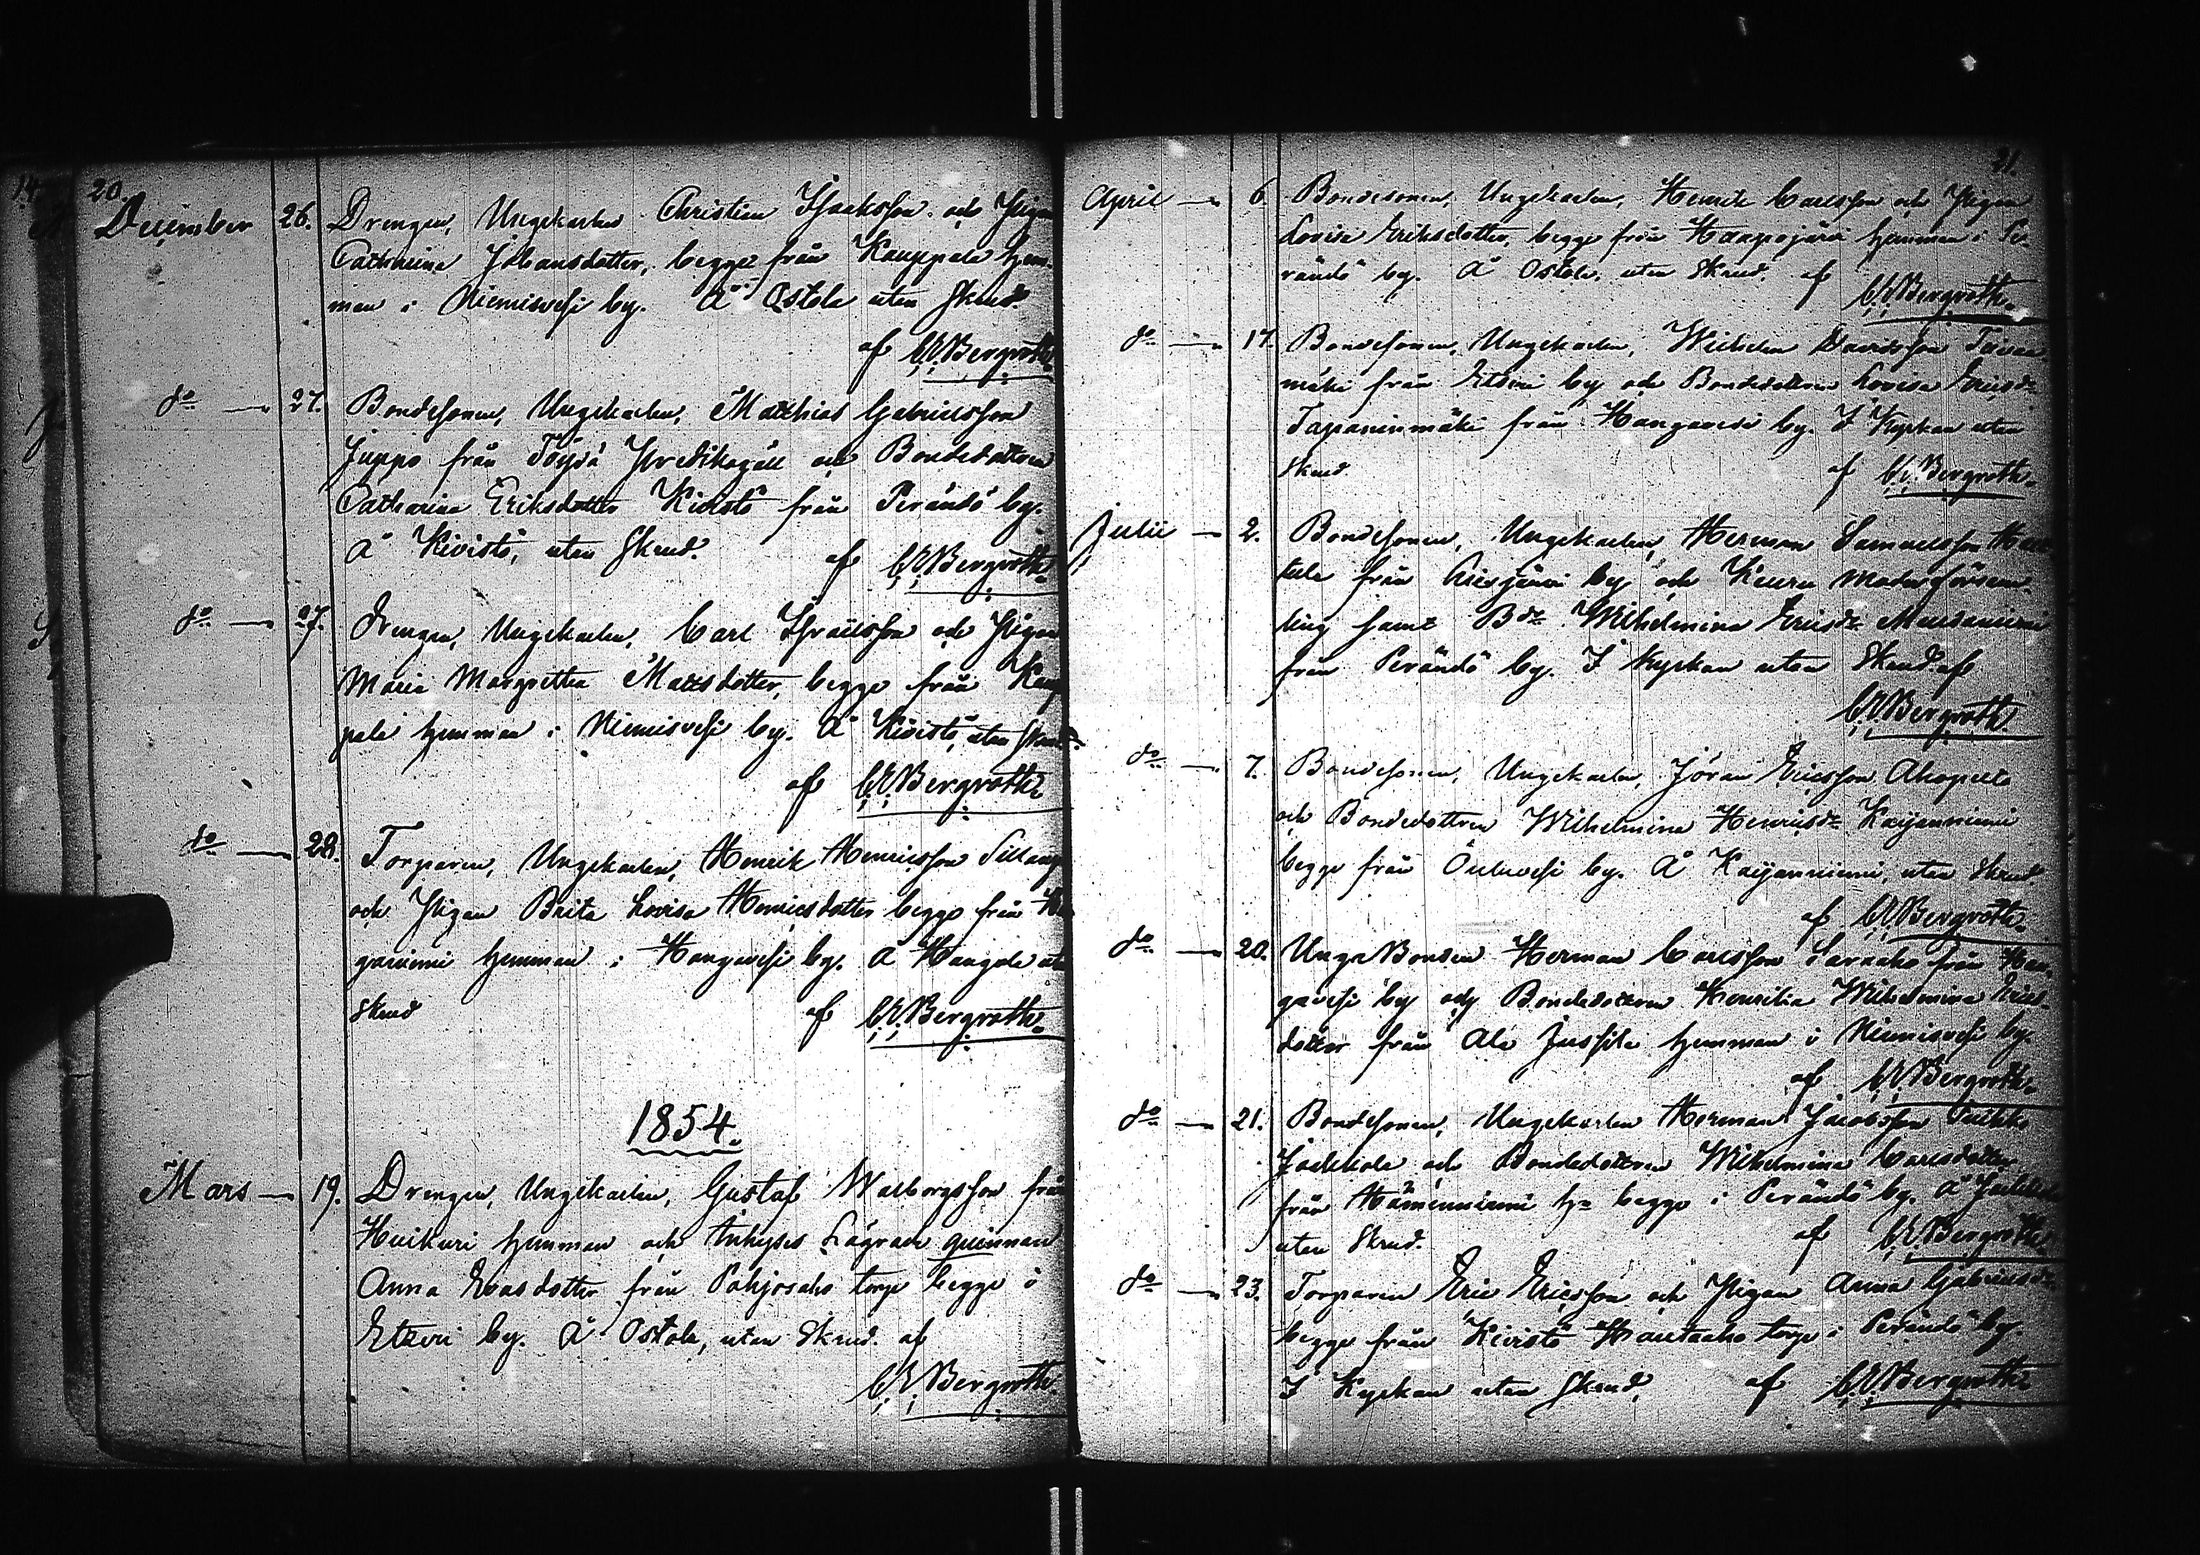 20.
December 26. Drengen, Ungekarlen Christian Isaksson och Pigan
Catharina Johansdotter, begge från Kauppala hem-
man i Niemisvesi by. Å Ostola utan Skrud.
af C.E. Bergroth.
do — 27. Bondesonen, Ungekarlen, Matthias Gabrielsson
Juppo från Töysä Predikogäll och Bondedottren
Catharina Eriksdotter Kivistö från Perändö by.
Å Kivistö, utan Skrud. af C.E. Bergroth.
do — 27. Drengen, Ungekarlen, Carl Israelsson och Pigan
Maria Margretha Mattsdotter, begge från Kaup-
pala hemman i Niemisvesi by. Å Kivistö, utan Skrud.
af C.E. Bergroth.
do — 28. Torparen, Ungekarlen, Henrik Henricsson
och Pigan Brita Lovisa Henricsdotter begge från
hemman i Hangavesi by. Å Hangola utan
Skrud af C.E. Bergroth.
1854.
Mars — 19. Drengen, Ungekarlen, Gustaf Walborgsson från
Huikuri hemman och Inhyses Lägrade quinnan
Anna Evasdotter från Pohjosaho torp begge i
Etzeri by. Å Ostola, utan Skrud. af
C.E. Bergroth.
21.
April — 6. Bondesonen, Ungekarlen, Henrik Carlsson och Pigan
Lovisa Eriksdotter, begge från Haapojärvi hemman i Pe-
rändö by. Å Ostola, utan Skrud. af
C.E. Bergroth.
do — 17. Bondesonen, Ungekarlen, Wilhelm Davidsson
mäki från Etzeri by och Bondedottren Lovisa Ericsdr
Tapaninmäki från Hangavesi by. I Kyrkan utan
Skrud. af C.E. Bergroth.
Julii — 2. Bondesonen, Ungekarlen, Herman Samuelsson
från by och Keuru Moderförsam-
ling samt Bdr Wilhelmina Ericsdr
från Perändö by. I Kyrkan utan Skrud af
C.E. Bergroth.
do — 7. Bondesonen, Ungekarlen, Jöran Ericsson Ahopelto
och Bondedottren Wilhelmina Henricsdr Kaijanniemi
begge från by. Å Kaijanniemi, utan Skrud.
af C.E. Bergroth.
do — 20. Unga Bonden Herman Carlsson från Han-
gavesi by och Bondedottren Wilhelmina Erics-
dotter från Ala Jussila hemman i Niemisvesi by.
af C.E. Bergroth.
do — 21. Bondesonen, Ungekarlen Herman Jacobsson
Jackkola och Bondedottren Wilhelmina Carlsdotter
från Hämenniemi hn begge i Perändö by. Å Jackkola
utan Skrud. af C.E. Bergroth.
do — 23. Torparen Eric Ericsson och Pigan Anna Gabrielsdr
begge från Kivistö Hautaaho torp i Perändö by.
I Kyrkan utan Skrud, af C.E. Bergroth.